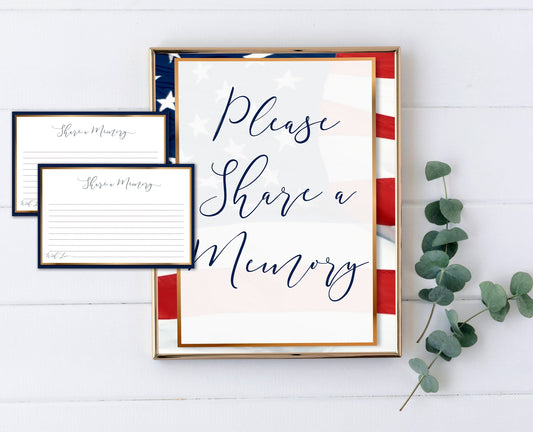 Please
Share a
Memory
Share a Memory
Share a Memory